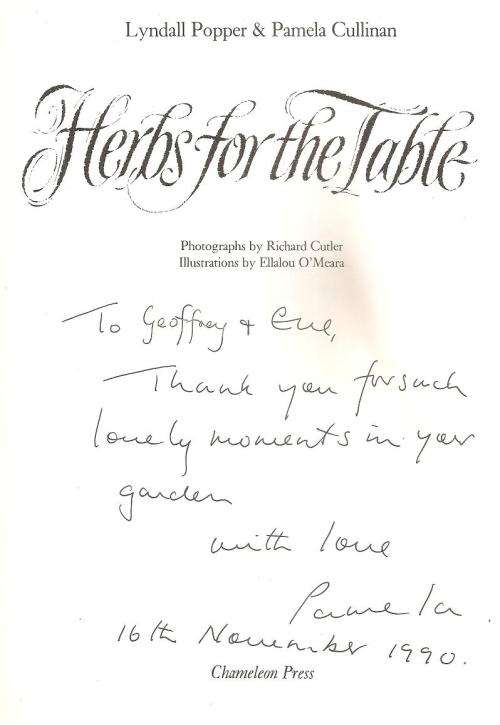 Lyndall Popper & Pamela Cullinan
Herbs for the Table
Photographs by Richard Cutler
Illustrations by Ellalou O'Meara
To Geoffrey + Eve,
Thank you for such
lovely moments in your
garden
with love
Pamela
16th November 1990.
Chameleon Press